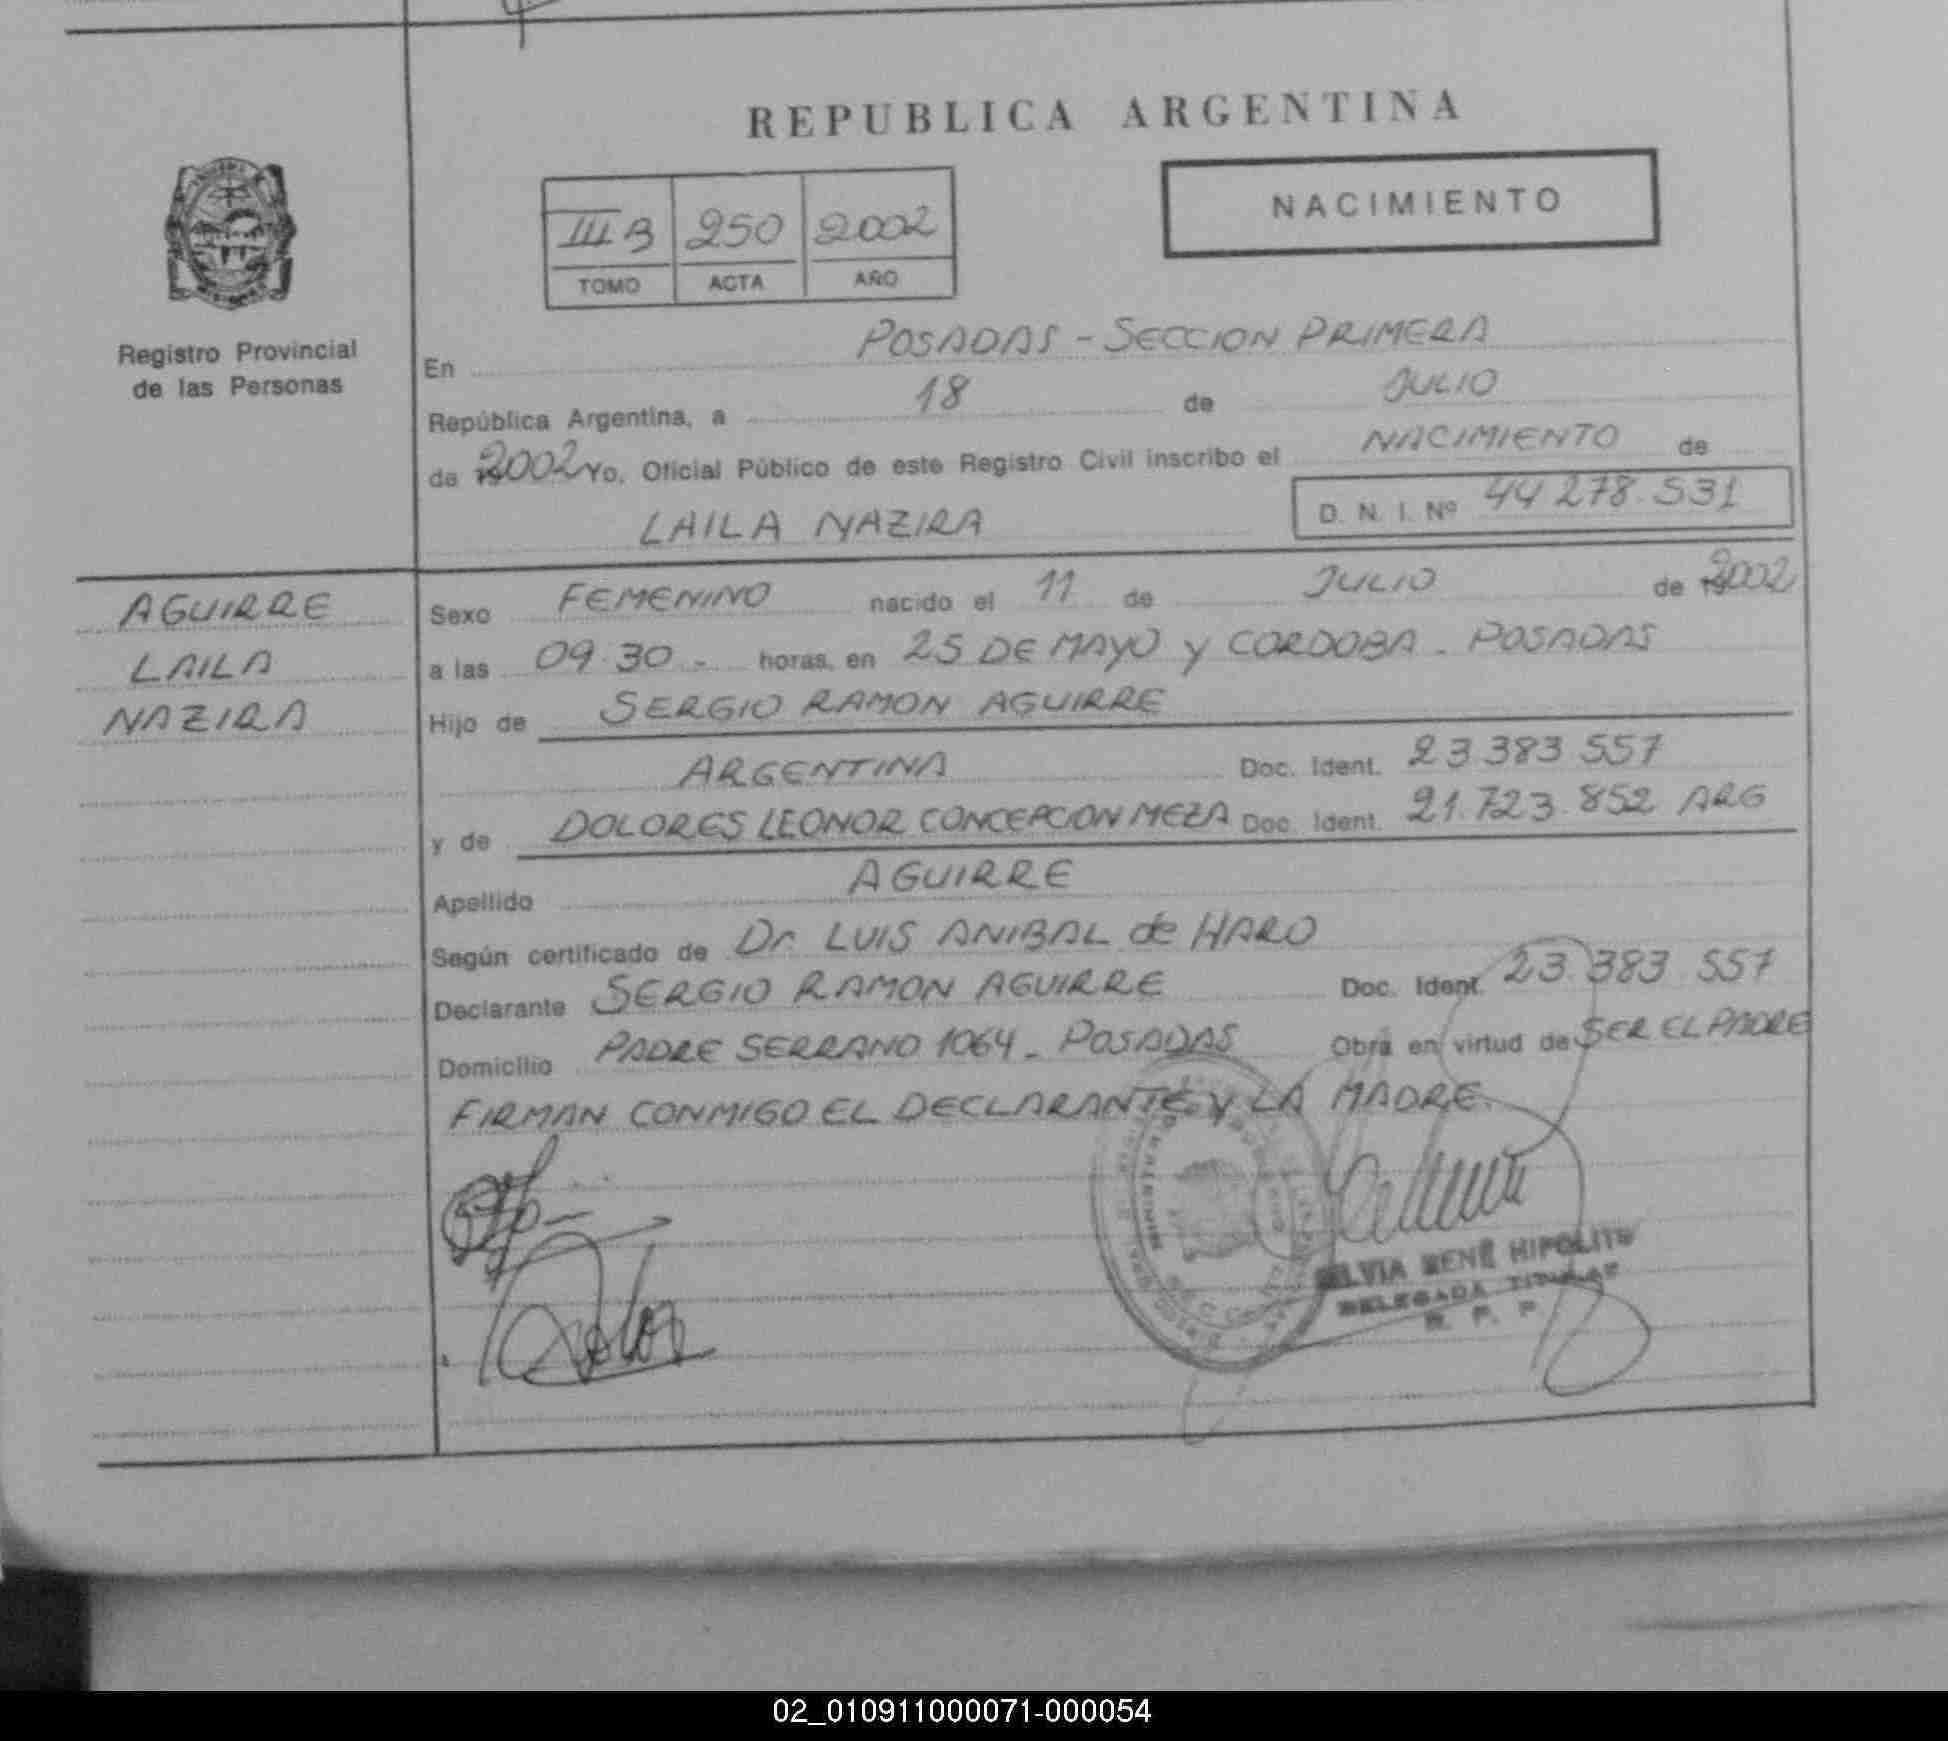 REPUBLICA ARGENTINA
III B 250 2002
TOMO ACTA AÑO
NACIMIENTO
Registro Provincial
de las Personas
En POSADAS - SECCION PRIMERA
República Argentina, a 18 de JULIO
de 2002 Yo, Oficial Público de este Registro Civil inscribo el NACIMIENTO de
LAILA NAZIRA D. N. I. Nº 44 278.531
AGUIRRE
LAILA
NAZIRA
Sexo FEMENINO nacido el 11 de JULIO de 2002
a las 09.30 - horas, en 25 DE MAYO y CORDOBA - POSADAS
Hijo de SERGIO RAMON AGUIRRE
ARGENTINA Doc. Ident. 23 383 557
y de DOLORES LEONOR CONCEPCION MEZA Doc. Ident. 21.723.852 ARG
Apellido AGUIRRE
Según certificado de Dr. LUIS ANIBAL de HARO
Declarante SERGIO RAMON AGUIRRE Doc. Ident. 23.383 557
Domicilio PADRE SERRANO 1064 - POSADAS Obra en virtud de SER EL PADRE
FIRMAN CONMIGO EL DECLARANTE Y LA MADRE.
SILVIA RENÉ HIPOLITO
DELEGADA TITULAR
R. P. P.
02_010911000071-000054